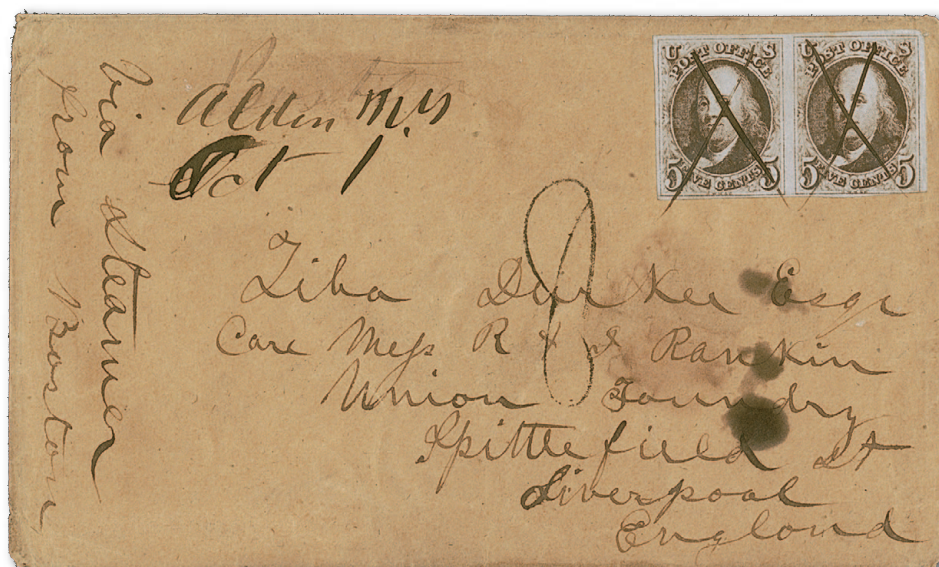 via steamer
from Boston
Alden NY
Oct 1
U S
POST OFFICE
5 FIVE CENTS 5
U S
POST OFFICE
5 FIVE CENTS 5
8
Ziba Durkee Esqr
Care Mess R & J Rankin
Union Foundry
Spittlefield St
Liverpool
England